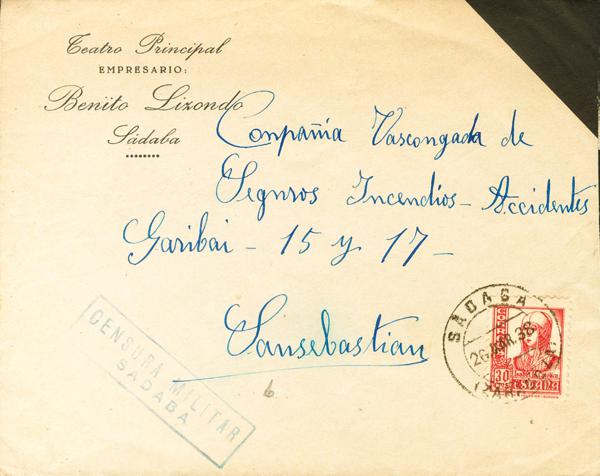 Teatro Principal
EMPRESARIO:
Benito Lizondo
Sádaba
Conpañia Vascongada de
Seguros Incendios - Accidentes
Garibai - 15 y 17 -
Sansebastian
CENSURA MILITAR
SADABA
SADABA
26 ABR. 38
30
6